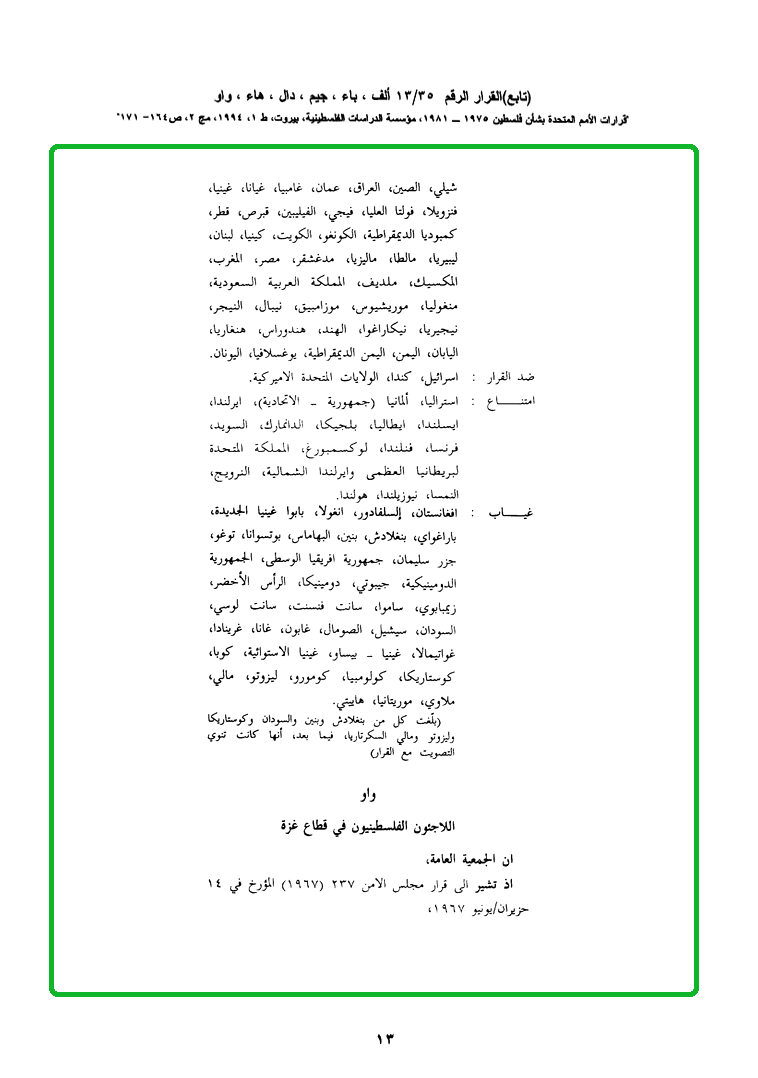 (تابع)القرار الرقم ١٣/٣٥ ألف ، باء ، جيم ، دال ، هاء ، واو
"قرارات الأمم المتحدة بشأن فلسطين ١٩٧٥ ــ ١٩٨١، مؤسسة الدراسات الفلسطينية، بيروت، ط ١، ١٩٩٤، مج ٢، ص١٦٤- ١٧١"
شيلي، الصين، العراق، عمان، غامبيا، غيانا، غينيا،
فنزويلا، فولتا العليا، فيجي، الفيليبين، قبرص، قطر،
كمبوديا الديمقراطية، الكونغو، الكويت، كينيا، لبنان،
ليبيريا، مالطا، ماليزيا، مدغشقر، مصر، المغرب،
المكسيك، ملديف، المملكة العربية السعودية،
منغوليا، موريشيوس، موزامبيق، نيبال، النيجر،
نيجيريا، نيكاراغوا، الهند، هندوراس، هنغاريا،
اليابان، اليمن، اليمن الديمقراطية، يوغسلافيا، اليونان.
ضد القرار : اسرائيل، كندا، الولايات المتحدة الاميركية.
امتنـــــاع : استراليا، ألمانيا (جمهورية ــ الاتحادية)، ايرلندا،
ايسلندا، ايطاليا، بلجيكا، الدانمارك، السويد،
فرنسا، فنلندا، لوكسمبورغ، المملكة المتحدة
لبريطانيا العظمى وايرلندا الشمالية، النرويج،
النمسا، نيوزيلندا، هولندا.
غيـــــاب : افغانستان، إلسلفادور، انغولا، بابوا غينيا الجديدة،
باراغواي، بنغلادش، بنين، البهاماس، بوتسوانا، توغو،
جزر سليمان، جمهورية افريقيا الوسطى، الجمهورية
الدومينيكية، جيبوتي، دومينيكا، الرأس الأخضر،
زيمبابوي، ساموا، سانت فنسنت، سانت لوسي،
السودان، سيشيل، الصومال، غابون، غانا، غرينادا،
غواتيمالا، غينيا ــ بيساو، غينيا الاستوائية، كوبا،
كوستاريكا، كولومبيا، كومورو، ليزوتو، مالي،
ملاوي، موريتانيا، هاييتي.
(بلّغت كل من بنغلادش وبنين والسودان وكوستاريكا
وليزوتو ومالي السكرتاريا، فيما بعد، أنها كانت تنوي
التصويت مع القرار)
واو
اللاجئون الفلسطينيون في قطاع غزة
ان الجمعية العامة،
اذ تشير الى قرار مجلس الامن ٢٣٧ (١٩٦٧) المؤرخ في ١٤
حزيران/يونيو ١٩٦٧،
١٣